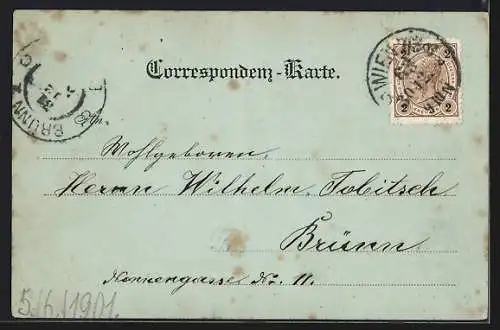 Correspondenz-Karte.
WIEN
2 2
BRÜNN
An
Wohlgeboren
Herrn Wilhelm Tobitsch
Brünn
Nonnengasse Nr. 11.
5/6./1901.